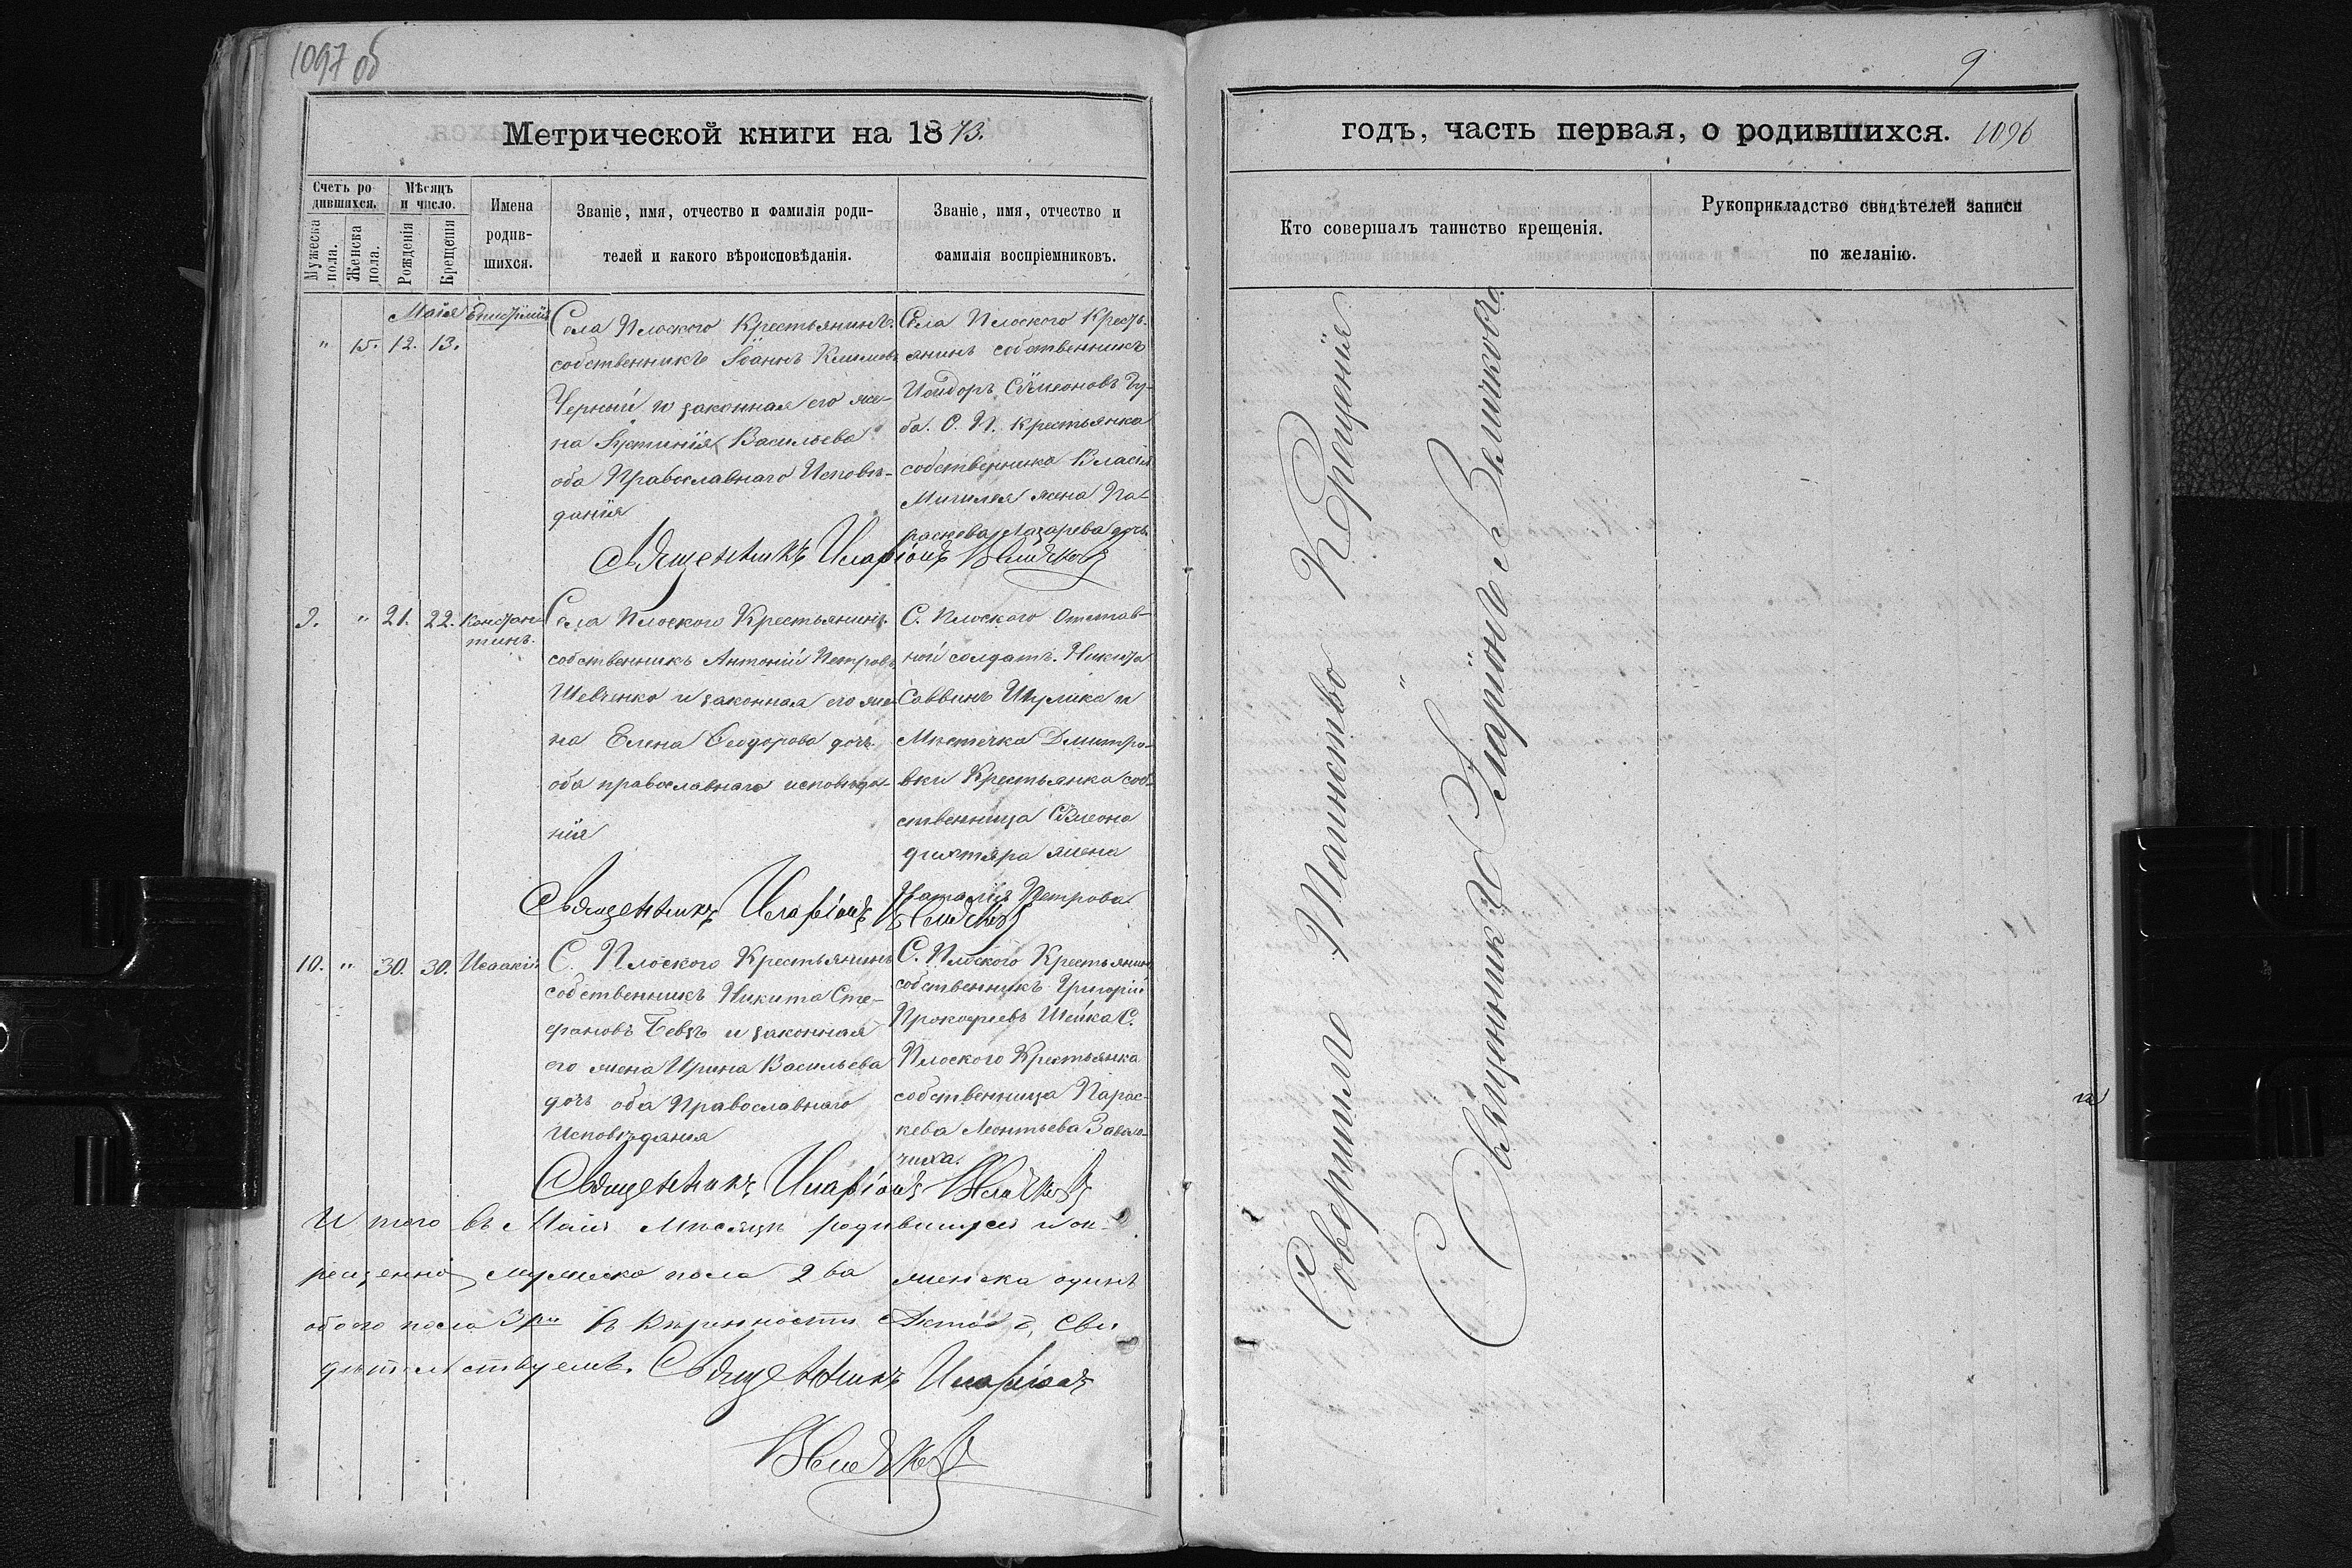 1097 об
Метрической книги на 1873.
Счетъ родившихся.
Мужеска пола.
Женска пола.
Мѣсяцъ и число.
Рожденія
Крещенія
Имена родившихся.
Званіе, имя, отчество и фамилія роди-
телей и какого вѣроисповѣданія.
Званіе, имя, отчество и
фамилія воспріемниковъ.
Маія
" 15. 12. 13.
Села Плоского Крестьянинъ
собственникъ Іоаннъ Климовъ
Черный и законная его же-
на Іустинія Васильева
оба Православнаго Исповѣ-
данія
Села Плоского Кресть-
янинъ собственникъ
Исидоръ Сѵмеоновъ
ба. С. П. крестьянка
собственника Власія
жена Па-
раскева Лазарева дочь
Священникъ Иларіонъ Величковъ
9. " 21. 22. Констан-
тинъ.
Села Плоского Крестьянинъ
собственникъ Антоній Петровъ
Шевченко и законная его же-
на Елена Ѳеодорова дочь
оба православнаго исповѣда-
нія
С. Плоского Отстав-
ной солдатъ Никита
Саввинъ Шулика и
Мѣстечка Дмитро-
вки Крестьянка соб-
ственница Сѵмеона
жена
Наталія Петрова
Священникъ Иларіонъ Величковъ
10. " 30. 30. Исаакій
С. Плоского Крестьянинъ
собственникъ Никита Сте-
фановъ Бевзъ и законная
его жена Ирина Васильева
дочь оба Православнаго
Исповѣданія
С. Плоского Крестьянинъ
собственникъ Григорій
Прокофіевъ Шейка С.
Плоского Крестьянка
собственница Парас-
кева Леонтьева
Священникъ Иларіонъ Величковъ
Итого въ Маіѣ Мѣсяцѣ родившихся и ок-
рещенно мужеска пола 2ва женска одинъ
обоего пола 3ри въ вѣрности Актовъ Сви
дѣтельствуемъ. Священникъ Иларіонъ
Величковъ
9
годъ, часть первая, о родившихся. 1096
Кто совершалъ таинство крещенія.
Рукоприкладство свидѣтелей записи
по желанію.
Совершилъ Таинство Крещенія
Священникъ Иларіонъ Величковъ